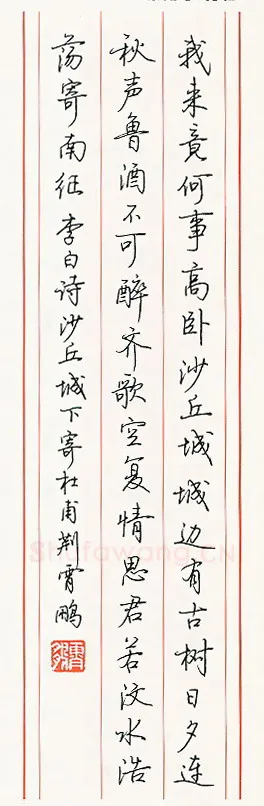 我来竟何事高卧沙丘城城边有古树日夕连
秋声鲁酒不可醉齐歌空复情思君若汶水浩
荡寄南征李白诗沙丘城下寄杜甫荆霄鹏
Shufawang.CN